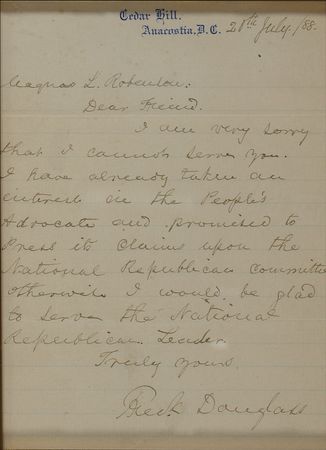 Cedar Hill.
Anacostia, D.C. 20th July /88.
Magnus L. Robinson:
Dear Friend.
I am very sorry
that I cannot serve you.
I have already taken an
interest in the People's
Advocate and promised to
Press its claims upon the
National Republican Committee
otherwise I would be glad
to serve the National
Republican Leader
Truly yours.
Fredk Douglass